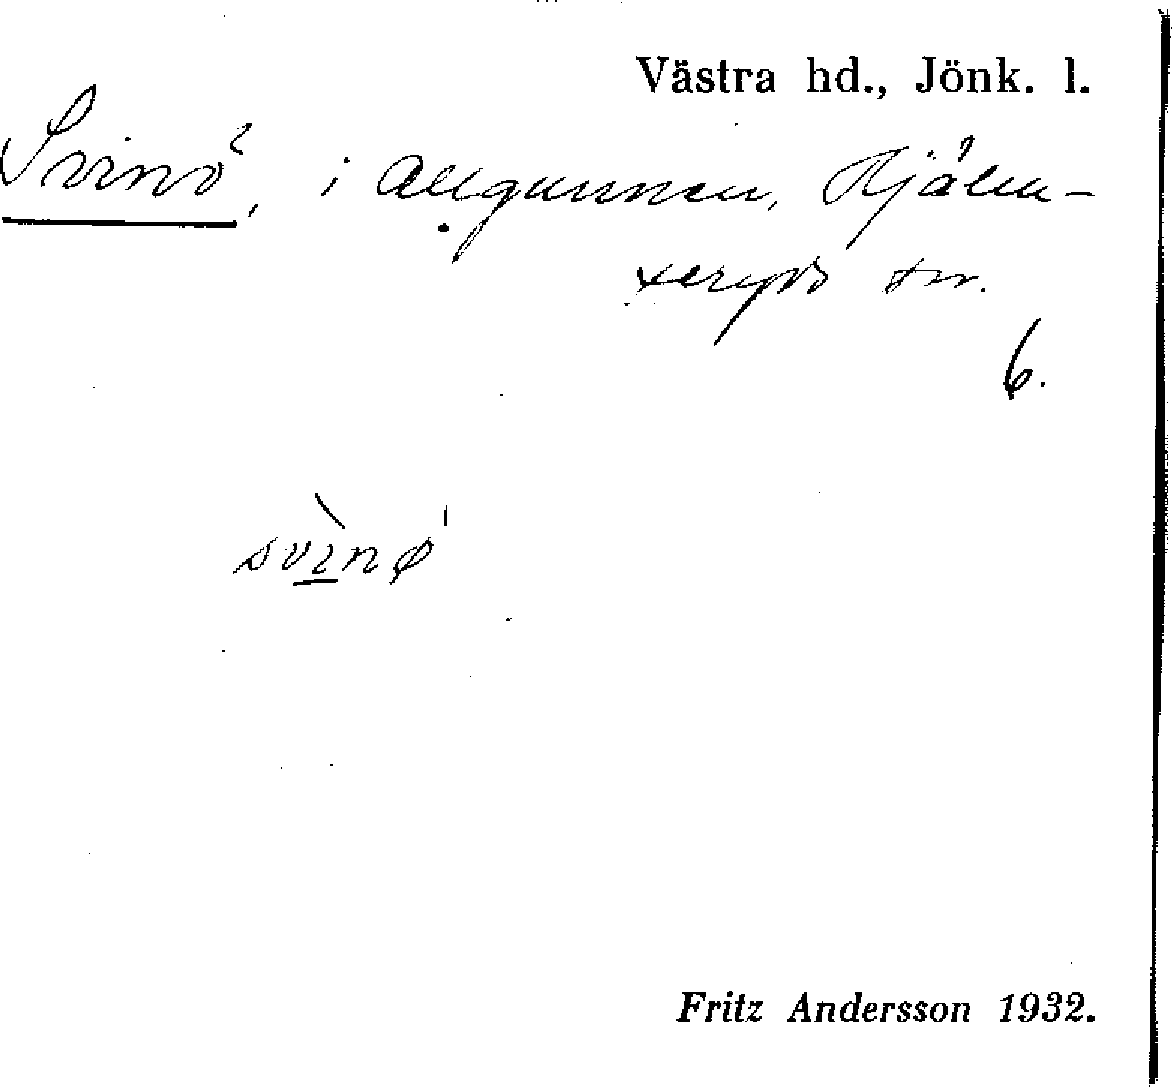 Västra hd., Jönk. l.
Svinö, i Allgunnen, Hjälm-
seryds sn.
6.
svìnø'
Fritz Andersson 1932.